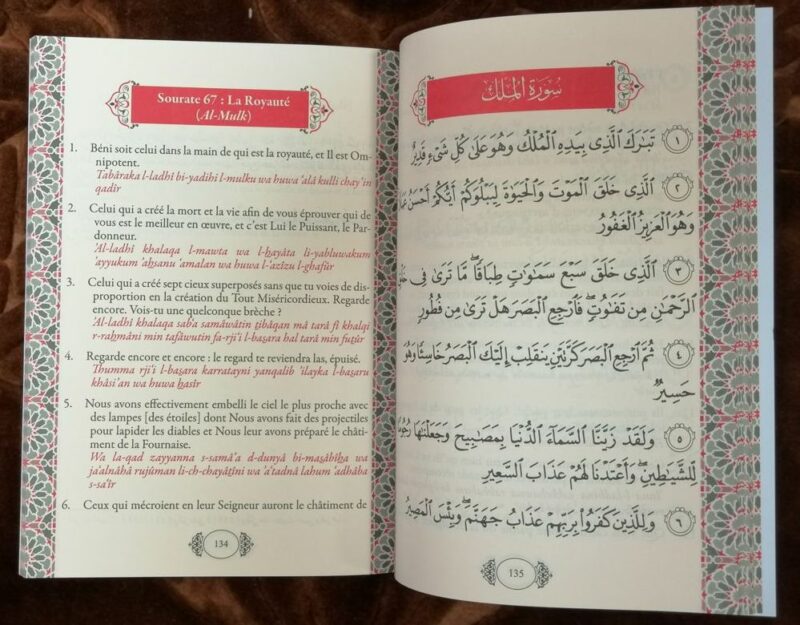 Sourate 67 : La Royauté
(Al-Mulk)
1. Béni soit celui dans la main de qui est la royauté, et Il est Om-
nipotent.
Tabâraka l-ladhî bi-yadihi l-mulku wa huwa 'alâ kulli chay'in
qadîr
2. Celui qui a créé la mort et la vie afin de vous éprouver qui de
vous est le meilleur en œuvre, et c'est Lui le Puissant, le Par-
donneur.
'Al-ladhî khalaqa l-mawta wa l-ḥayâta li-yabluwakum
'ayyukum 'aḥsanu 'amalan wa huwa l-'azîzu l-ghafûr
3. Celui qui a créé sept cieux superposés sans que tu voies de dis-
proportion en la création du Tout Miséricordieux. Regarde
encore. Vois-tu une quelconque brèche ?
'Al-ladhî khalaqa sab'a samâwâtin ṭibâqan mâ tarâ fî khalqi
r-raḥmâni min tafâwutin fa-rji'i l-baṣara hal tarâ min fuṭûr
4. Regarde encore et encore : le regard te reviendra las, épuisé.
Thumma rji'i l-baṣara karratayni yanqalib 'ilayka l-baṣaru
khâsi'an wa huwa ḥasîr
5. Nous avons effectivement embelli le ciel le plus proche avec
des lampes [des étoiles] dont Nous avons fait des projectiles
pour lapider les diables et Nous leur avons préparé le châti-
ment de la Fournaise.
Wa la-qad zayyanna s-samâ'a d-dunyâ bi-maṣâbîḥa wa
ja'alnâhâ rujûman li-ch-chayâṭîni wa 'a'tadnâ lahum 'adhâba
s-sa'îr
6. Ceux qui mécroient en leur Seigneur auront le châtiment de
134
سُورَةُ الْمُلْكِ
تَبَٰرَكَ ٱلَّذِى بِيَدِهِ ٱلْمُلْكُ وَهُوَ عَلَىٰ كُلِّ شَىْءٍ قَدِيرٌ ١
ٱلَّذِى خَلَقَ ٱلْمَوْتَ وَٱلْحَيَوٰةَ لِيَبْلُوَكُمْ أَيُّكُمْ أَحْسَنُ ٢
وَهُوَ ٱلْعَزِيزُ ٱلْغَفُورُ
ٱلَّذِى خَلَقَ سَبْعَ سَمَٰوَٰتٍ طِبَاقًا ۖ مَّا تَرَىٰ فِى ٣
ٱلرَّحْمَٰنِ مِن تَفَٰوُتٍ ۖ فَٱرْجِعِ ٱلْبَصَرَ هَلْ تَرَىٰ مِن فُطُورٍ
ثُمَّ ٱرْجِعِ ٱلْبَصَرَ كَرَّتَيْنِ يَنقَلِبْ إِلَيْكَ ٱلْبَصَرُ خَاسِئًا وَهُوَ ٤
حَسِيرٌ
وَلَقَدْ زَيَّنَّا ٱلسَّمَآءَ ٱلدُّنْيَا بِمَصَٰبِيحَ وَجَعَلْنَٰهَا ٥
لِّلشَّيَٰطِينِ ۖ وَأَعْتَدْنَا لَهُمْ عَذَابَ ٱلسَّعِيرِ
وَلِلَّذِينَ كَفَرُوا۟ بِرَبِّهِمْ عَذَابُ جَهَنَّمَ ۖ وَبِئْسَ ٱلْمَصِيرُ ٦
135